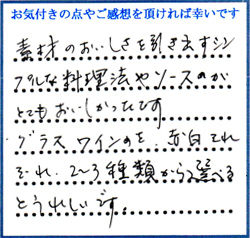 お気付きの点やご感想を頂ければ幸いです
素材のおいしさを引き出すシン
プルな料理法やソースのが
とてもおいしかったです
グラスワインのを、赤白それ
ぞれ、2〜3種類から選べる
とうれしいです。